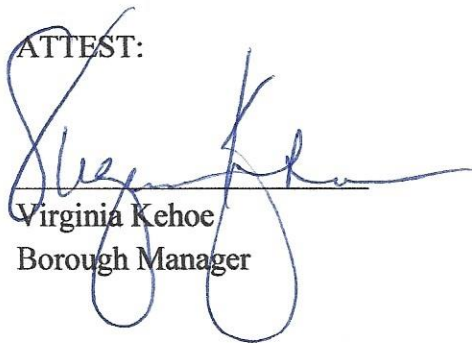 ATTEST:
Virginia Kehoe
Borough Manager